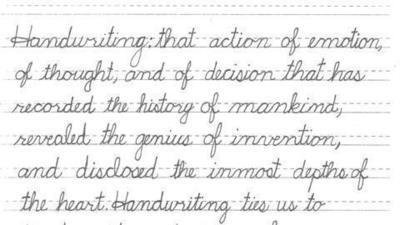 Handwriting: that action of emotion,
of thought, and of decision that has
recorded the history of mankind,
revealed the genius of invention,
and disclosed the inmost depths of
the heart. Handwriting ties us to